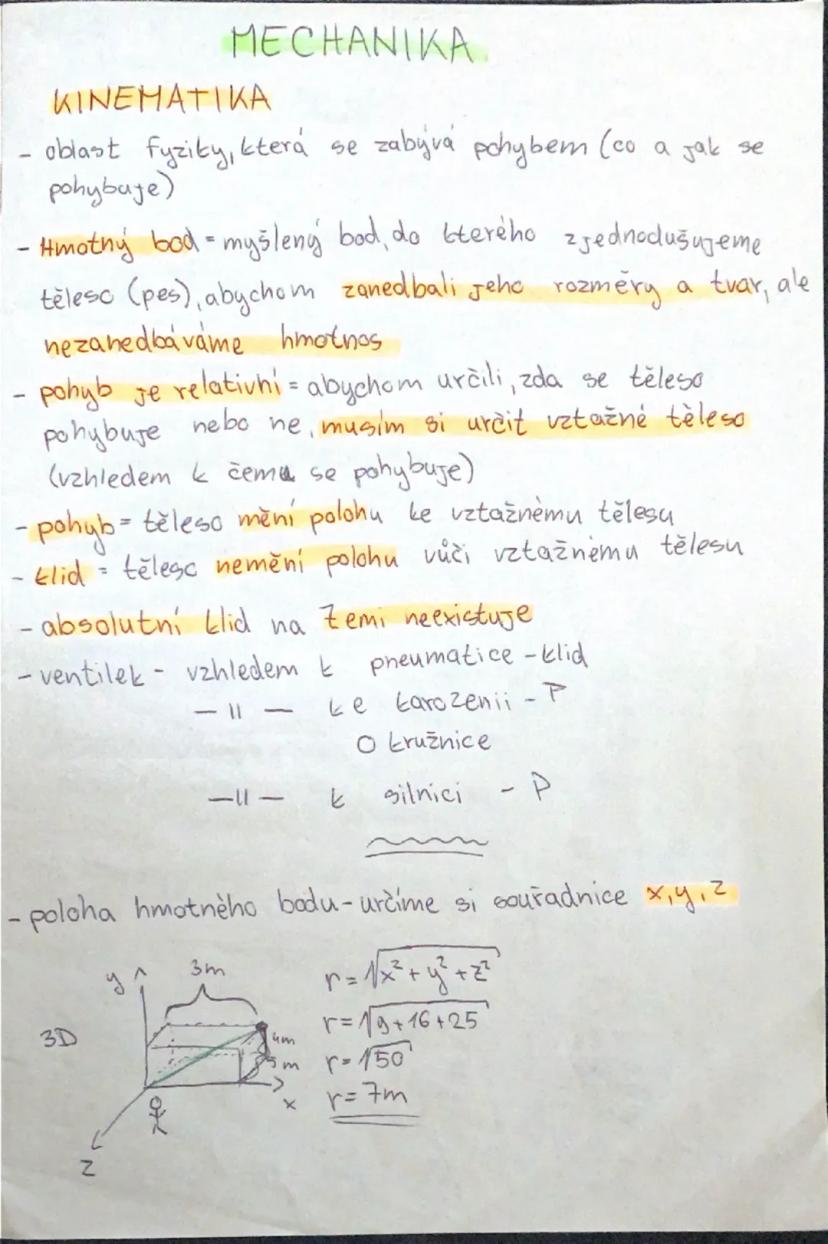 MECHANIKA
KINEMATIKA
- oblast fyziky, která se zabývá pohybem (co a jak se
pohybuje)
- Hmotný bod = myšlený bod, do kterého zjednodušujeme
těleso (pes), abychom zanedbali jeho rozměry a tvar, ale
nezanedbáváme hmotnos
- pohyb je relativní = abychom určili, zda se těleso
pohybuje nebo ne, musím si určit vztažné těleso
(vzhledem k čemu se pohybuje)
- pohyb = těleso mění polohu ke vztažnému tělesu
- klid = těleso nemění polohu vůči vztažnému tělesu
- absolutní klid na Zemi neexistuje
- ventilek - vzhledem k pneumatice - klid
— 11 — ke karozenii - P
O kružnice
— 11 — k silnici - P
- poloha hmotného bodu - určíme si souřadnice x, y, z
y 3m r = √x² + y² + z²
3D 4m r = √9 + 16 + 25
5m r = √50
x r = 7m
z